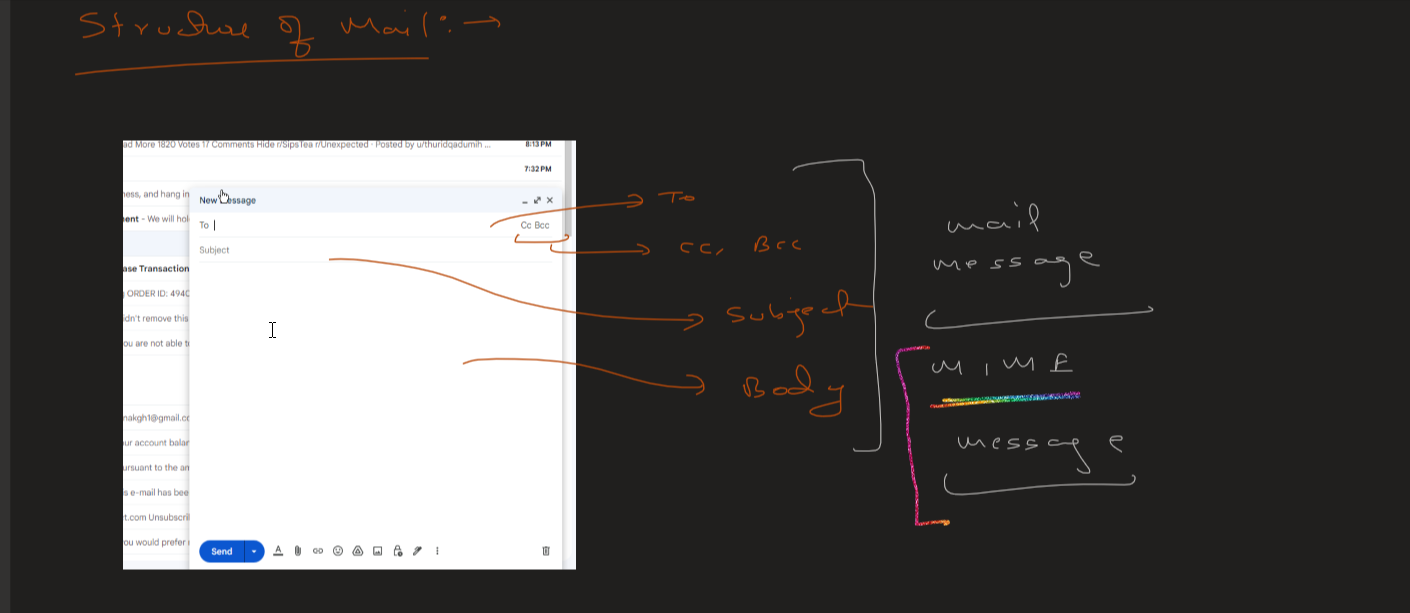 Structure of Mail :→
ad More 1820 Votes 17 Comments Hide r/SipsTea r/Unexpected - Posted by u/thuridqadumih ... 8:13 PM
7:32 PM
ness, and hang in
New Message
ent - We will hol
To
Cc Bcc
Subject
ase Transaction
ORDER ID: 494C
idn't remove this
ou are not able t
nakgh1@gmail.cc
ur account balar
ursuant to the an
s e-mail has bee
t.com Unsubscri
ou would prefer
Send
To
CC, Bcc
Subject
Body
mail
message
MIME
message